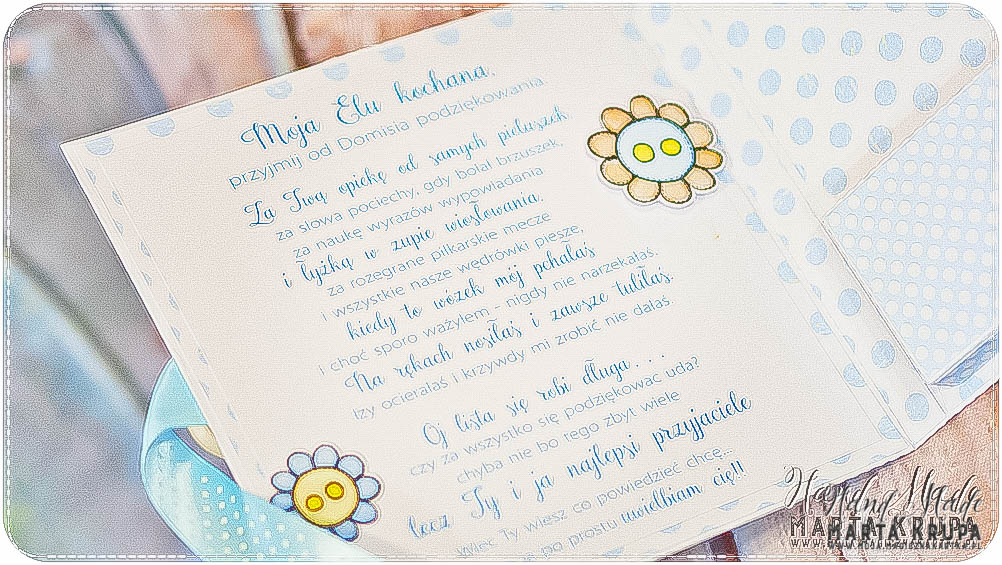 Moja Elu kochana,
przyjmij od Domisia podziękowania.
Za Twą opiekę od samych pieluszek
za słowa pociechy, gdy bolał brzuszek,
za naukę wyrazów wypowiadania
i łyżką w zupie wiosłowania.
za rozegrane piłkarskie mecze
i wszystkie nasze wędrówki piesze,
kiedy to wózek mój pchałaś
i choć sporo ważyłem - nigdy nie narzekałaś.
Na rękach nosiłaś i zawsze tuliłaś.
łzy ocierałaś i krzywdy mi zrobić nie dałaś.
Oj lista się robi długa...
czy za wszystko się podziękować uda?
chyba nie bo tego zbyt wiele
lecz Ty i ja najlepsi przyjaciele
więc Ty wiesz co powiedzieć chcę...
po prostu uwielbiam cię!!
MARTA KRUPA
MARTA KRUPA